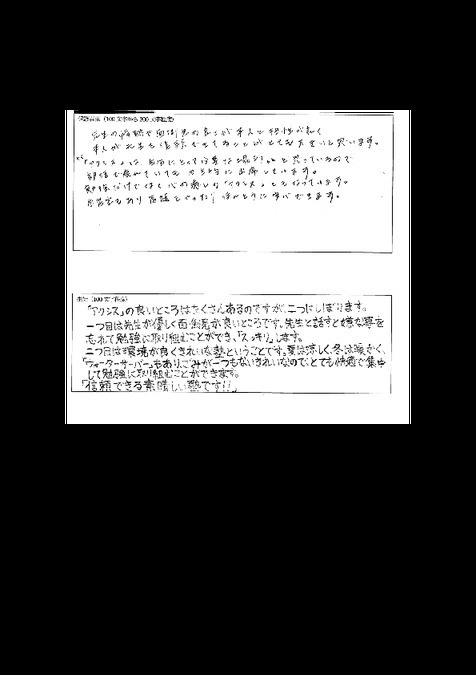 保護者様（100文字から200文字程度）
先生の 面倒見の良さが本人と相性が良く
本人が先生を信頼できていることがとても大きいと思います。
「アクシス」は、自分にとって大事な場所 と思っているので
部活で疲れていても 出席しています。
勉強だけではなく心の癒しな「アクシス」となっています。
自習室もあり 本当に安心できます。
生徒（100文字程度）
「アクシス」の良いところはたくさんあるのですが、二つにしぼります。
一つ目は先生が優しく面倒見が良いところです。先生と話すと嫌な事を
忘れて勉強に取り組むことができ、「スッキリ」します。
二つ目は環境が良くきれいな塾ということです。夏は涼しく、冬は暖かく、
「ウォーターサーバー」もあり、ごみが一つもないきれいなので、とても快適で集中
して勉強に取り組むことができます。
「信頼できる素晴しい塾です!!」